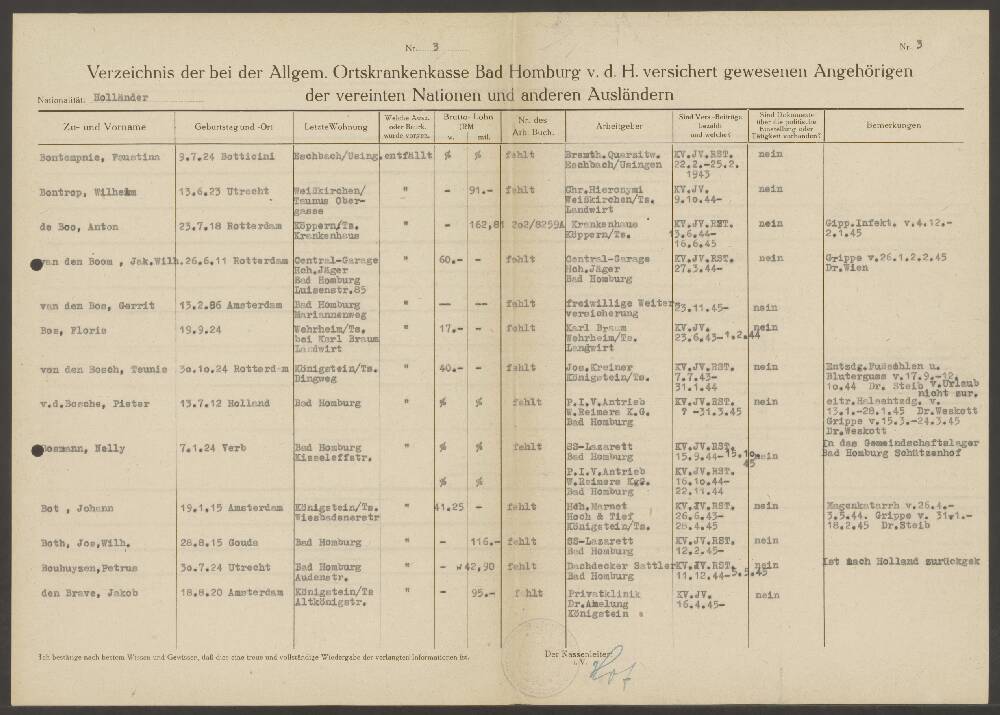 Nr. 3
Nr. 3
Verzeichnis der bei der Allgem. Ortskrankenkasse Bad Homburg v. d. H. versichert gewesenen Angehörigen
Nationalität: Holländer
der vereinten Nationen und anderen Ausländern
Zu- und Vorname | Geburtstag und -Ort | Letzte Wohnung | Welche Ausw. oder Bezirk. wurde vorgen. | Brutto-Lohn (RM w. mtl. | Nr. des Arb. Buch. | Arbeitgeber | Sind Vers.-Beiträge bezahlt und welche? | Sind Dokumente über die politische Einstellung oder Tätigkeit vorhanden? | Bemerkungen
Bontempnie, Faustina 9.7.24 Botticini Eschbach/Using. entfällt % % fehlt Bremth.Quarsitw. KV.JV.RST. nein
Eschbach/Usingen 22.2.-25.2.
1943
Bontrop, Wilhelm 13.6.23 Utrecht Weißkirchen/ " - 91.- fehlt Chr.Hieronymi KV.JV. nein
Taunus Ober- Weißkirchen/Ts. 9.10.44-
gasse Landwirt
de Boo, Anton 23.7.18 Rotterdam Köppern/Ts. " - 162,81 2o2/8259A Krankenhaus KV.JV.RST. nein Gipp.Infekt. v.4.12.-
Krankenhaus Köppern/Ts. 13.6.44- 2.1.45
16.6.45
van den Boom , Jak.Wilh. 26.6.11 Rotterdam Central-Garage " 60.- - fehlt Central-Garage KV.JV.RST. nein Grippe v.26.1.2.2.45
Hch.Jäger Hch.Jäger 27.3.44- Dr.Wien
Bad Homburg Bad Homburg
Luisenstr.85
van den Bos, Gerrit 13.2.86 Amsterdam Bad Homburg " — — fehlt freiwillige Weiter- 23.11.45- nein
Mariannenweg versicherung
Bos, Floris 19.9.24 Wehrheim/Ts. " 17.- - fehlt Karl Braum KV.JV. nein
bei Karl Braum Wehrheim/Ts. 23.6.43-1.2.44
Landwirt Langwirt
von den Bosch, Teunis 3o.1o.24 Rotterdam Königstein/Ts. " 40.- - fehlt Jos.Kreiner KV.JV.RST. nein Entzdg.Fußsohlen u.
Dingweg Königstein/Ts. 7.7.43- Bluterguss v.17.9.-12.
31.1.44 1o.44 Dr. Steib v.Urlaub
nicht zur.
v.d.Bosche, Pieter 13.7.12 Holland Bad Homburg " % % fehlt P.I.V.Antrieb KV.JV.RST. nein eitr.Halsentzdg. v.
W.Reimers K.G. ? -31.3.45 13.1.-28.1.45 Dr.Weskott
Bad Homburg Grippe v.15.3.-24.3.45
Dr.Weskott
Bosmann, Nelly 7.1.24 Verb Bad Homburg " % % fehlt SS-Lazarett KV.JV.RST. nein In das Gemeindschaftslager
Kisseleffstr. Bad Homburg 15.9.44-15.10. Bad Homburg Schützenhof
45
P.I.V.Antrieb KV.JV.RST.
% % W.Reimers KgG. 16.1o.44-
Bad Homburg 22.11.44
Bot , Johann 19.1.15 Amsterdam Königstein/Ts. " 41.25 - fehlt Hdh.Marnot KV.JV.RST. nein Magenkatarrh v.26.4.-
Wiesbadenerstr Hoch & Tief 26.6.43- 3.5.44. Grippe v. 31.1.-
Königstein/Ts. 28.4.45 18.2.45 Dr.Steib
Both, Jos,Wilh. 28.8.15 Gouda Bad Homburg " - 116.- fehlt SS-Lazarett KV.JV.RST. nein
Bad Homburg 12.2.45-
Bouhuyzen,Petrus 3o.7.24 Utrecht Bad Homburg " - w42,90 fehlt Dachdecker Sattler KV.JV.RST. nein Ist nach Holland zurückgek
Audenstr. Bad Homburg 11.12.44-5.5.45
den Brave, Jakob 18.8.20 Amsterdam Königstein/Ts " - 95.- fehlt Privatklinik KV.JV. nein
Altkönigstr. Dr.Amelung 16.4.45-
Königstein
Ich bestätige nach bestem Wissen und Gewissen, daß dies eine treue und vollständige Wiedergabe der verlangten Informationen ist.
Der Kassenleiter:
i.V.